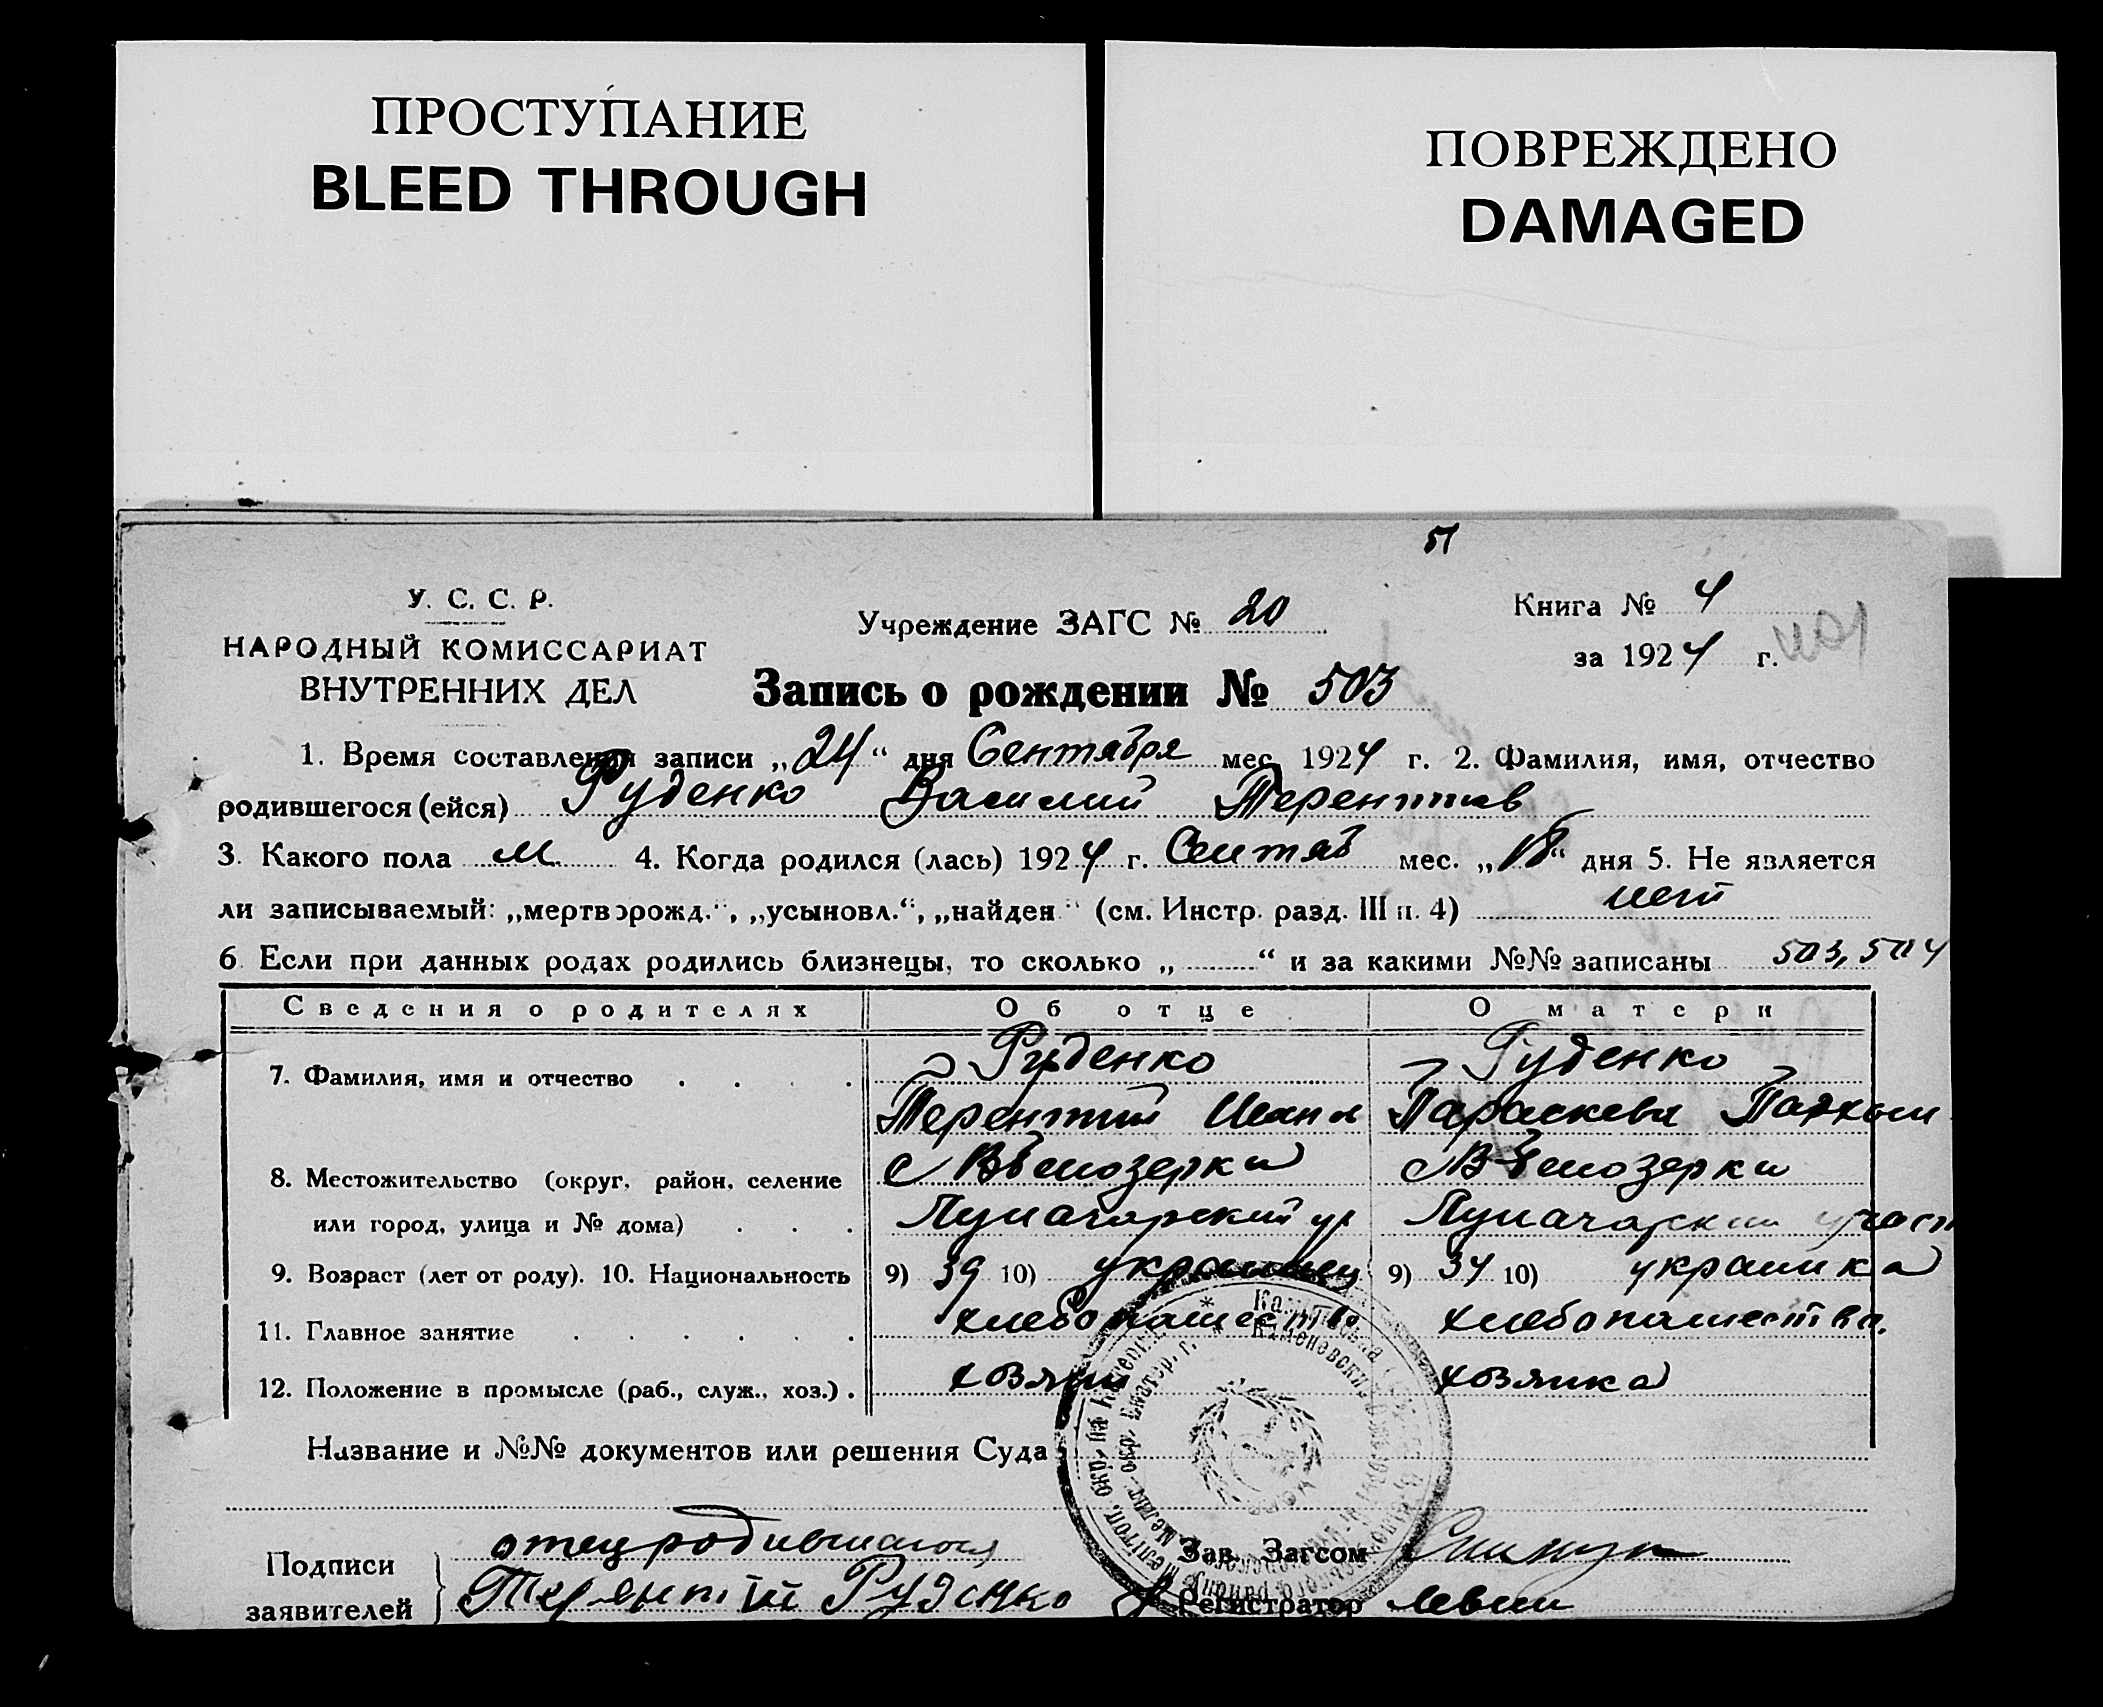 ПРОСТУПАНИЕ
BLEED THROUGH
ПОВРЕЖДЕНО
DAMAGED
51
У. С. С. Р.
НАРОДНЫЙ КОМИССАРИАТ
ВНУТРЕННИХ ДЕЛ
Учреждение ЗАГС № 20
Книга № 4
за 1924 г.
Запись о рождении № 503
1. Время составления записи „24“ дня Сентября мес. 1924 г. 2. Фамилия, имя, отчество
родившегося (ейся) Руденко Василий Терентиев
3. Какого пола м. 4. Когда родился (лась) 1924 г. Сентяб мес. „18“ дня 5. Не является
ли записываемый: „мертворожд.“, „усыновл.“, „найден“ (см. Инстр. разд. III п. 4) нет
6. Если при данных родах родились близнецы, то сколько „ “ и за какими №№ записаны 503, 504
Сведения о родителях Об отце О матери
7. Фамилия, имя и отчество Руденко Руденко
Терентий Иван Параскева
8. Местожительство (округ, район, селение с Вбелозерки с Вбелозерки
или город, улица и № дома) Луначарский Луначарский
9. Возраст (лет от роду). 10. Национальность 9) 39 10) украинец 9) 34 10) украинка
11. Главное занятие хлебопашество хлебопашество.
12. Положение в промысле (раб., служ., хоз.). хозяин хозяйка
Название и №№ документов или решения Суда
Подписи заявителей
отец родившагося
Терянтій Руденко
Зав. Загсом
Регистратор